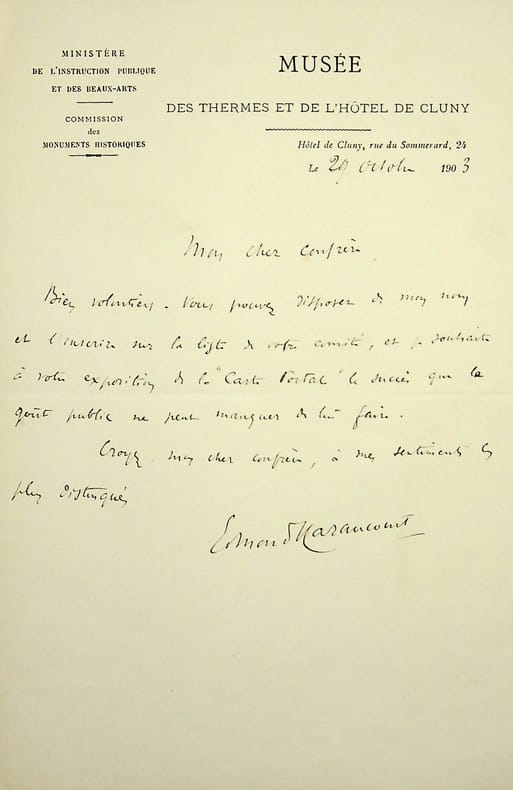 MINISTÈRE
DE L'INSTRUCTION PUBLIQUE
ET DES BEAUX-ARTS
COMMISSION
des
MONUMENTS HISTORIQUES
MUSÉE
DES THERMES ET DE L'HÔTEL DE CLUNY
Hôtel de Cluny, rue du Sommerard, 24
Le 29 octobre 1903
Mon cher confrère,
Bien volontiers. Vous pouvez disposer de mon nom
et l'inscrire sur la liste de votre comité, et je souhaite
à votre exposition de la "Carte Postale" le succès que le
goût public ne peut manquer de lui faire.
Croyez, mon cher confrère, à mes sentiments les
plus distingués
Edmond Haraucourt